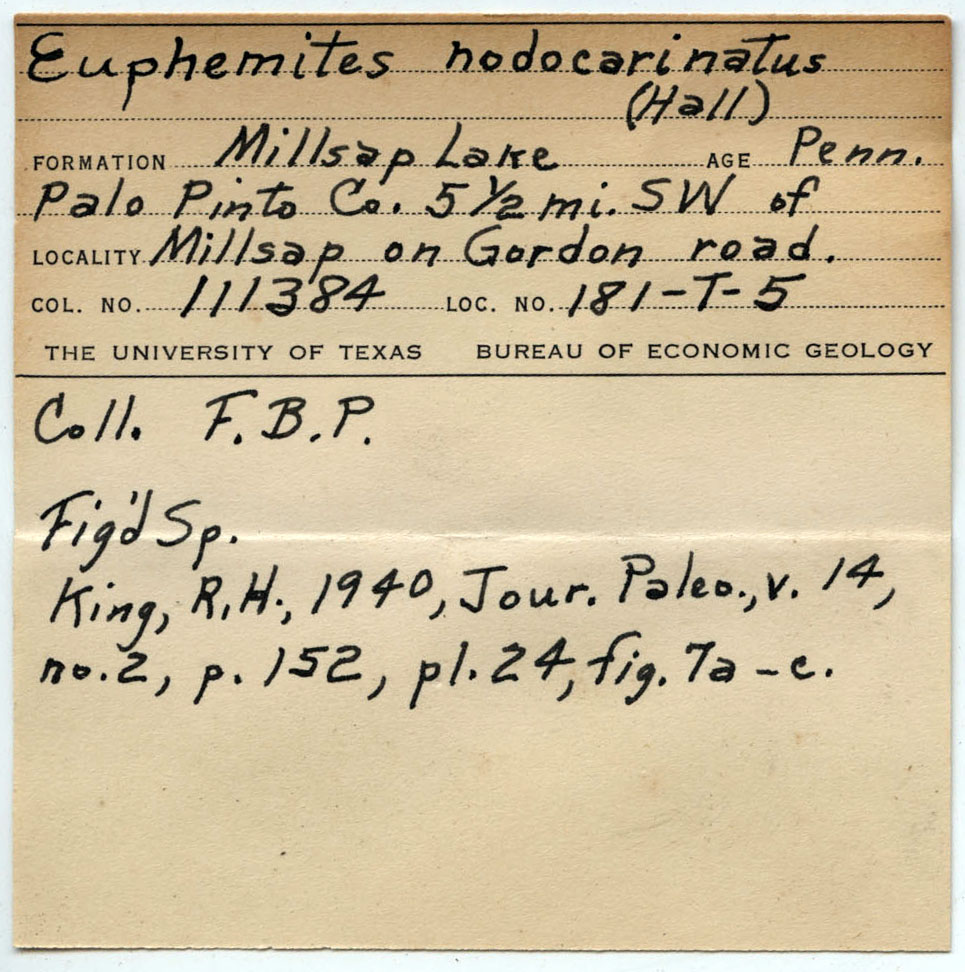 Euphemites nodocarinatus
(Hall)
FORMATION Millsap Lake AGE Penn.
Palo Pinto Co. 5 1/2 mi. SW of
LOCALITY Millsap on Gordon road.
COL. NO. 111384 LOC. NO. 181-T-5
THE UNIVERSITY OF TEXAS BUREAU OF ECONOMIC GEOLOGY
Coll. F.B.P.
Fig'd Sp.
King, R.H., 1940, Jour. Paleo., v. 14,
no.2, p. 152, pl. 24, fig. 7a-c.